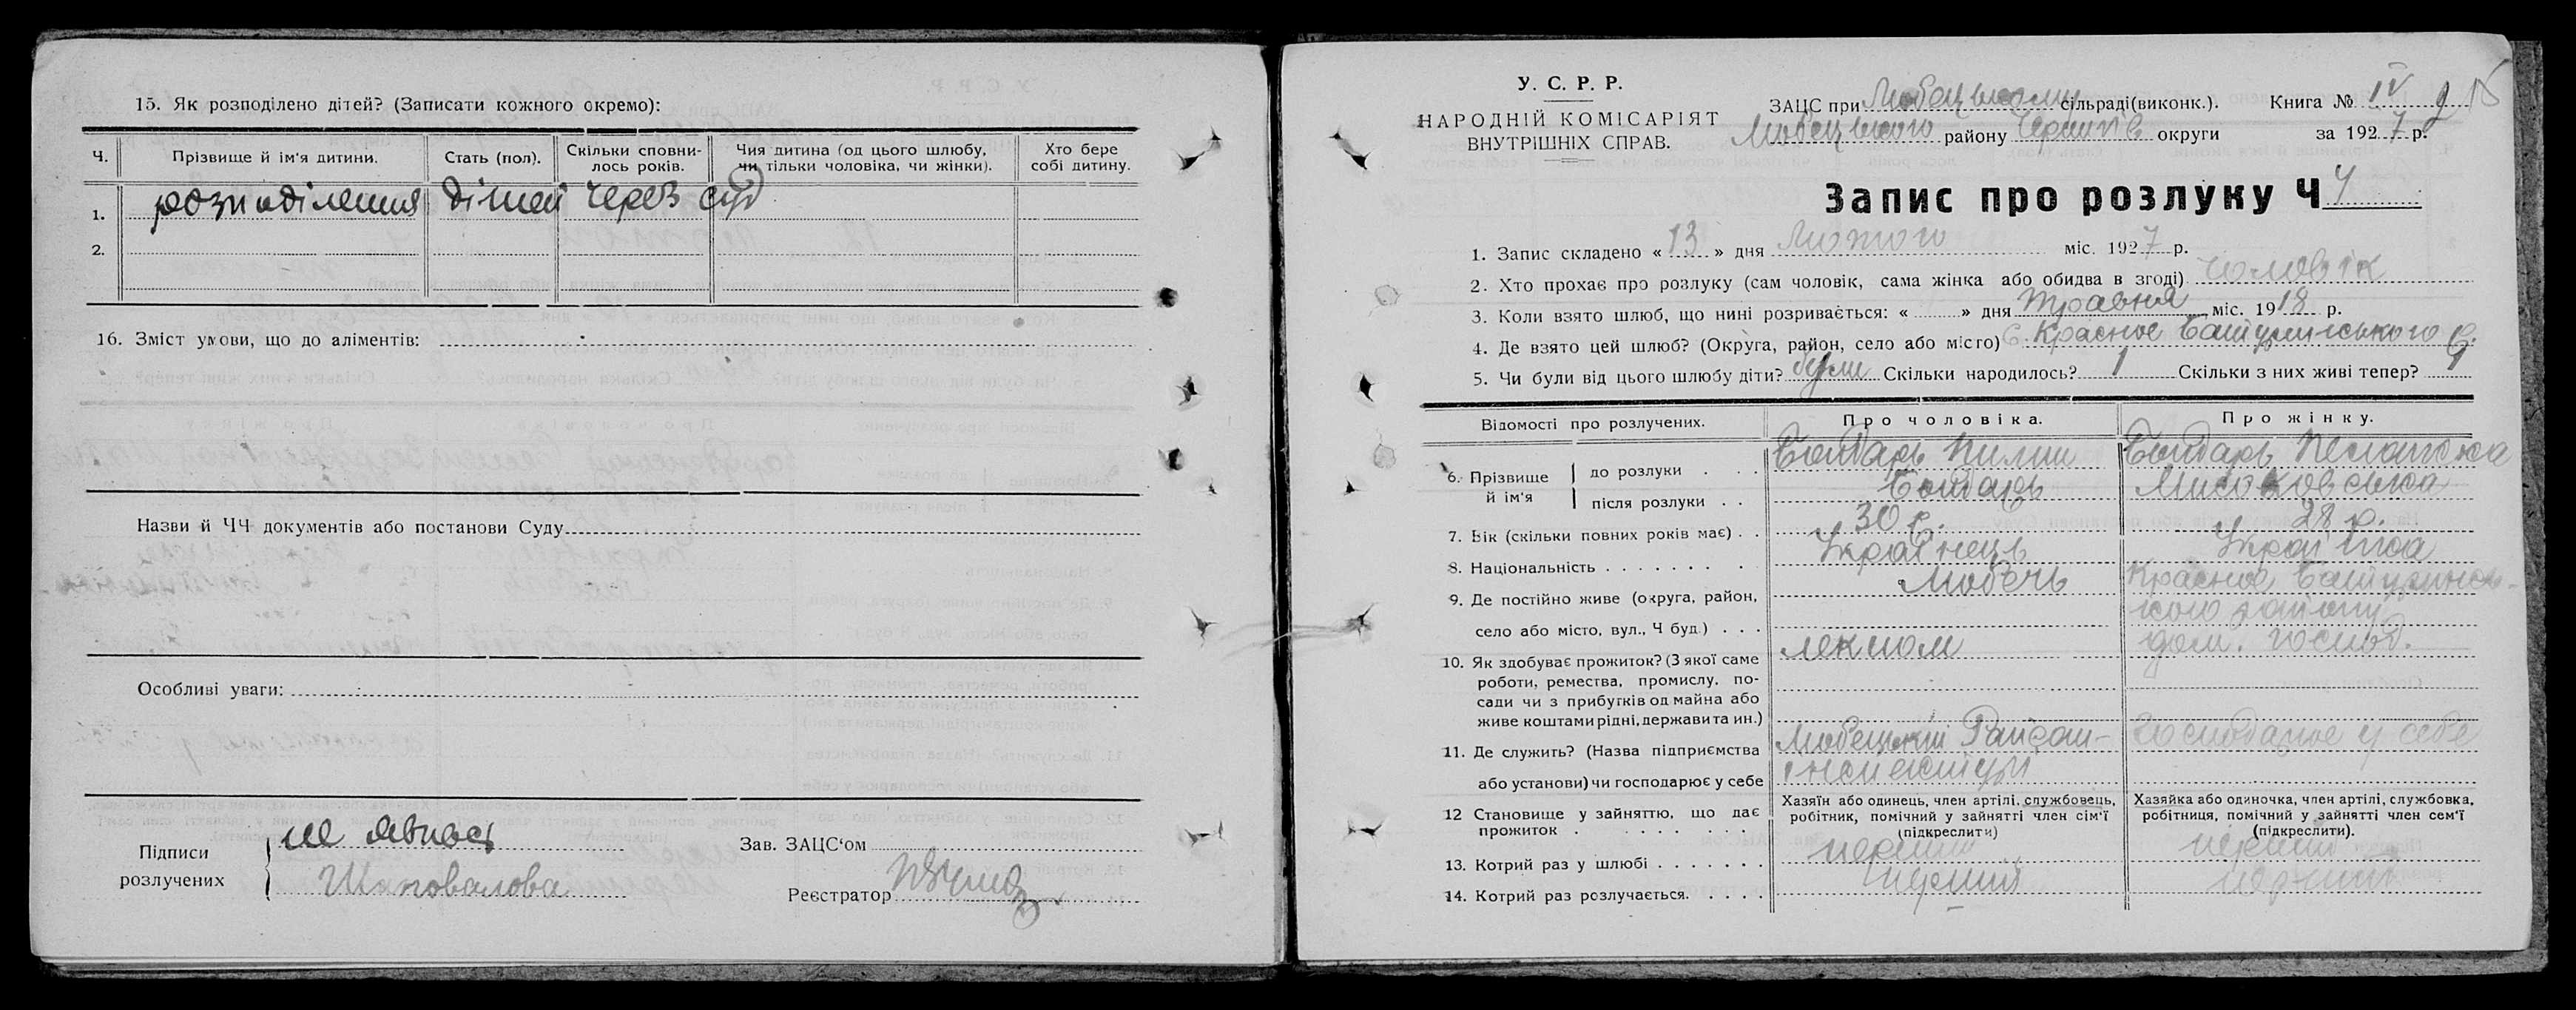 15. Як розподілено дітей? (Записати кожного окремо):
Ч. Прізвище й ім'я дитини. Стать (пол). Скільки сповни- лось років. Чия дитина (од цього шлюбу, чи тільки чоловіка, чи жінки). Хто бере собі дитину.
1. розподілення дітей через суд
2.
16. Зміст умови, що до аліментів:
Назви й ЧЧ документів або постанови Суду
Особливі уваги:
Підписи розлучених
не явивсь
Шаповалова
Зав. ЗАЦС'ом
Реєстратор
У. С. Р. Р.
НАРОДНІЙ КОМІСАРІЯТ
ВНУТРІШНІХ СПРАВ.
ЗАЦС при Любецькому сільраді (виконк.). Книга № IV
Любецького району Чернигів округи за 1927 р.
Запис про розлуку Ч 4
1. Запис складено « 13 » дня Лютого міс. 1927 р.
2. Хто прохає про розлуку (сам чоловік, сама жінка або обидва в згоді) чоловік
3. Коли взято шлюб, що нині розривається: « » дня травня міс. 1918 р.
4. Де взято цей шлюб? (Округа, район, село або місто) с. Красное
5. Чи були від цього шлюбу діти? були Скільки народилось? 1 Скільки з них живі тепер? 1
Відомості про розлучених. Про чоловіка. Про жінку.
6. Прізвище й ім'я
до розлуки . . . Бондарь Пилип Бондарь Пелагежа
після розлуки . . Бондарь
7. Вік (скільки повних років має) . . 30 р. 28 р.
8. Національність . . . . . . . . Українець Українка
9. Де постійно живе (округа, район, Любечь Красное
село або місто, вул., Ч буд.) . . .
10. Як здобуває прожиток? (З якої саме лекпом дом. господ.
роботи, ремества, промислу, по-
сади чи з прибутків од майна або
живе коштами рідні, держави та ин.)
11. Де служить? (Назва підприємства Любецький Райсан- Господарює у себе
або установи) чи господарює у себе
12 Становище у зайняттю, що дає прожиток . . . . . . . .
Хазяїн або одинець, член артілі, службовець,
робітник, помічний у зайнятті член сім'ї
(підкреслити)
Хазяйка або одиночка, член артілі, службовка,
робітниця, помічний у зайнятті член сем'ї
(підкреслити).
13. Котрий раз у шлюбі . . . . . . . перший перший
14. Котрий раз розлучається. . . . . перший перший